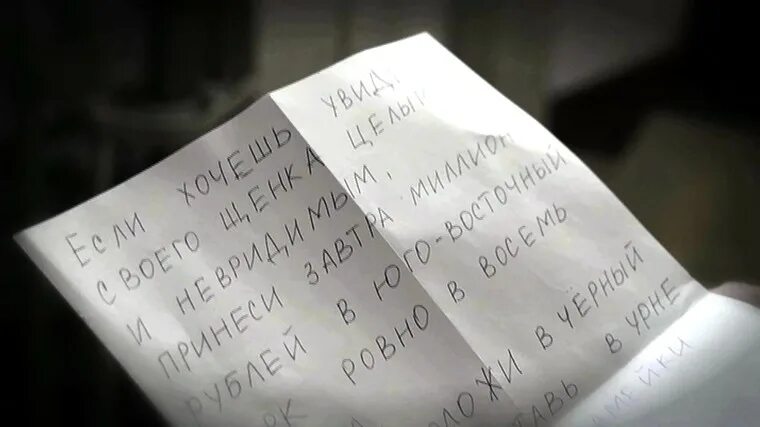 Если хочешь увид
своего щенка целы
и невридимым,
принеси завтра миллион
рублей в юго-восточный
рк ровно в восемь
ложи в чёрный
тавь в урне
мейки